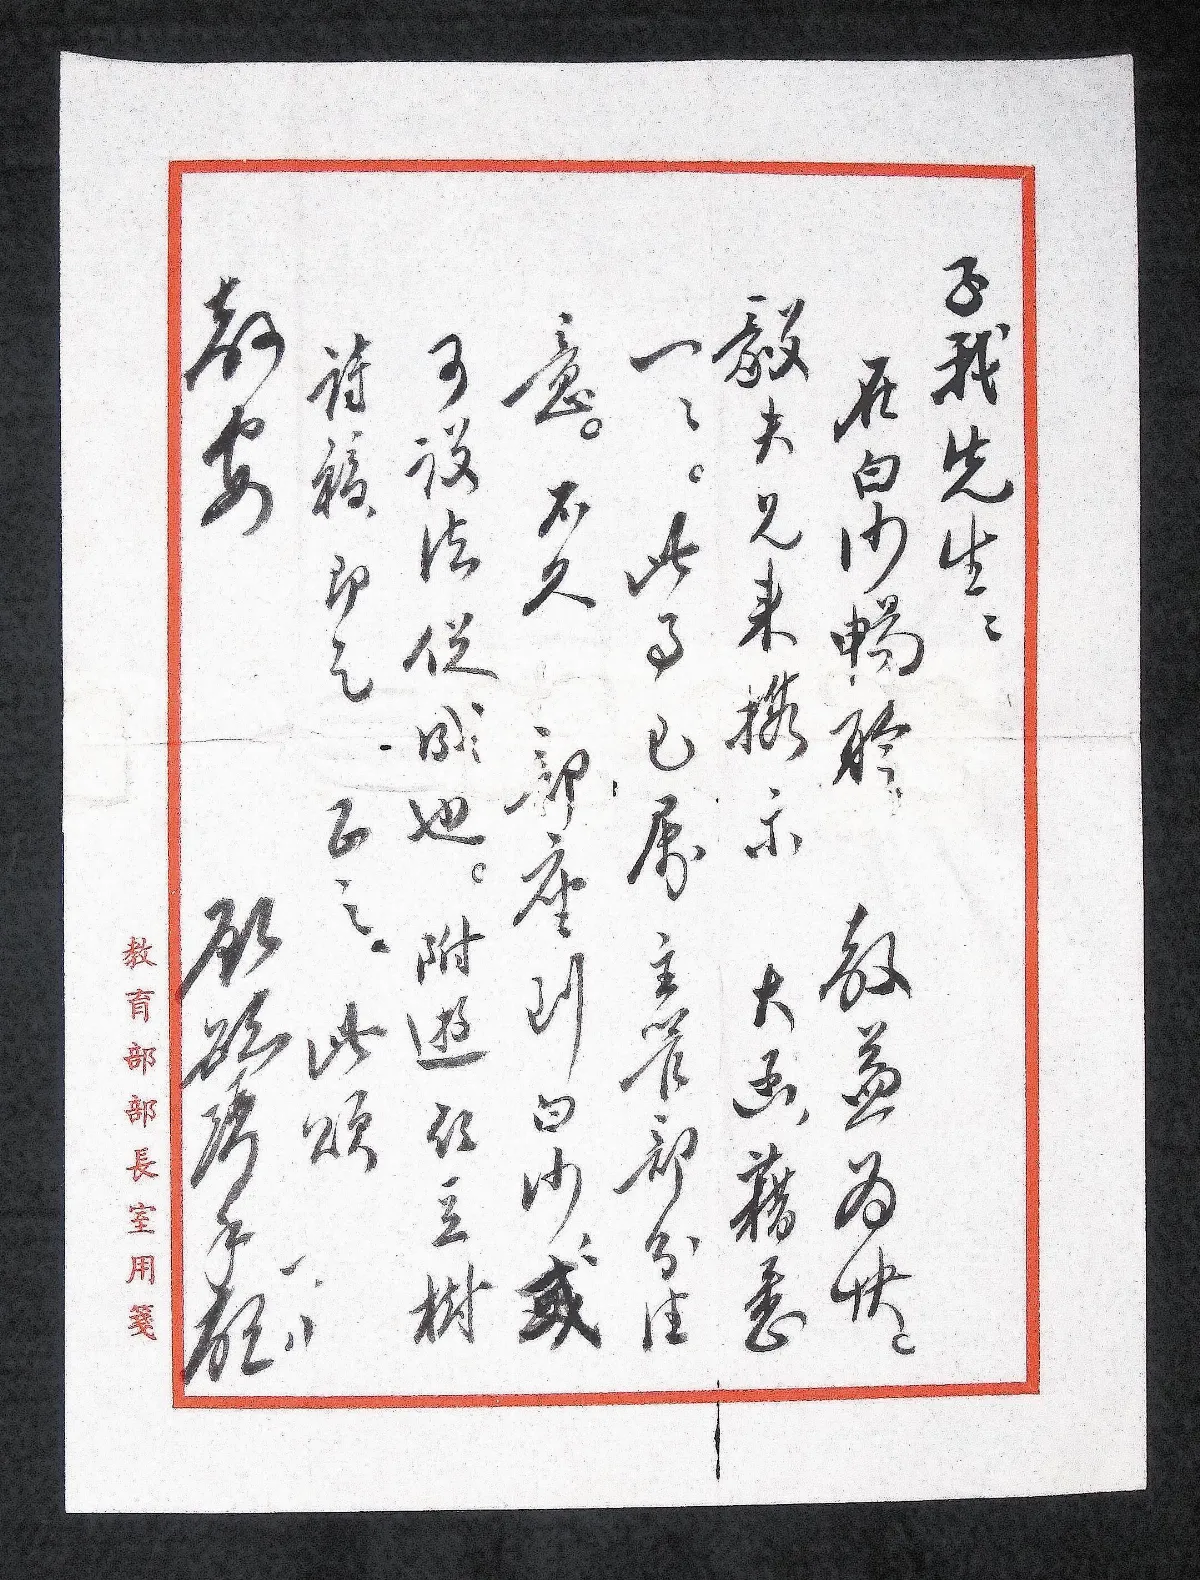 子我先生：
在白沙暢聆 教益為快：
毅夫兄来携示 大函藉悉
一一。此事已屬主管部分注
意。不久 部座到白沙，或
可設法促成也。附遊 立樹
詩稿，即乞 正之。此頌
教安
顧毓琇手啟 一、八
教育部部長室用箋